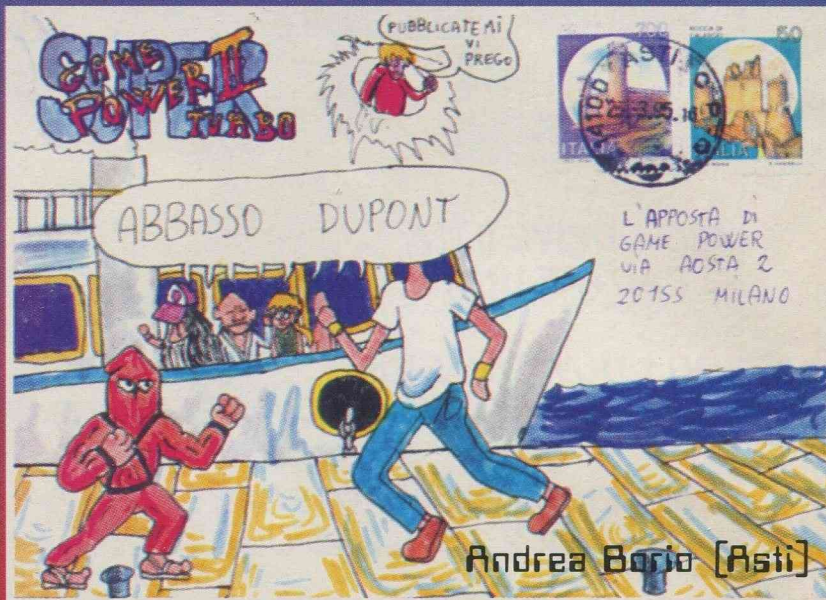 SUPER
GAME II
POWER
TURBO
PUBBLICATEMI
VI
PREGO
ABBASSO DUPONT
ITALIA
50
L'APPOSTA DI
GAME POWER
VIA AOSTA 2
20155 MILANO
Andrea Borio [Asti]